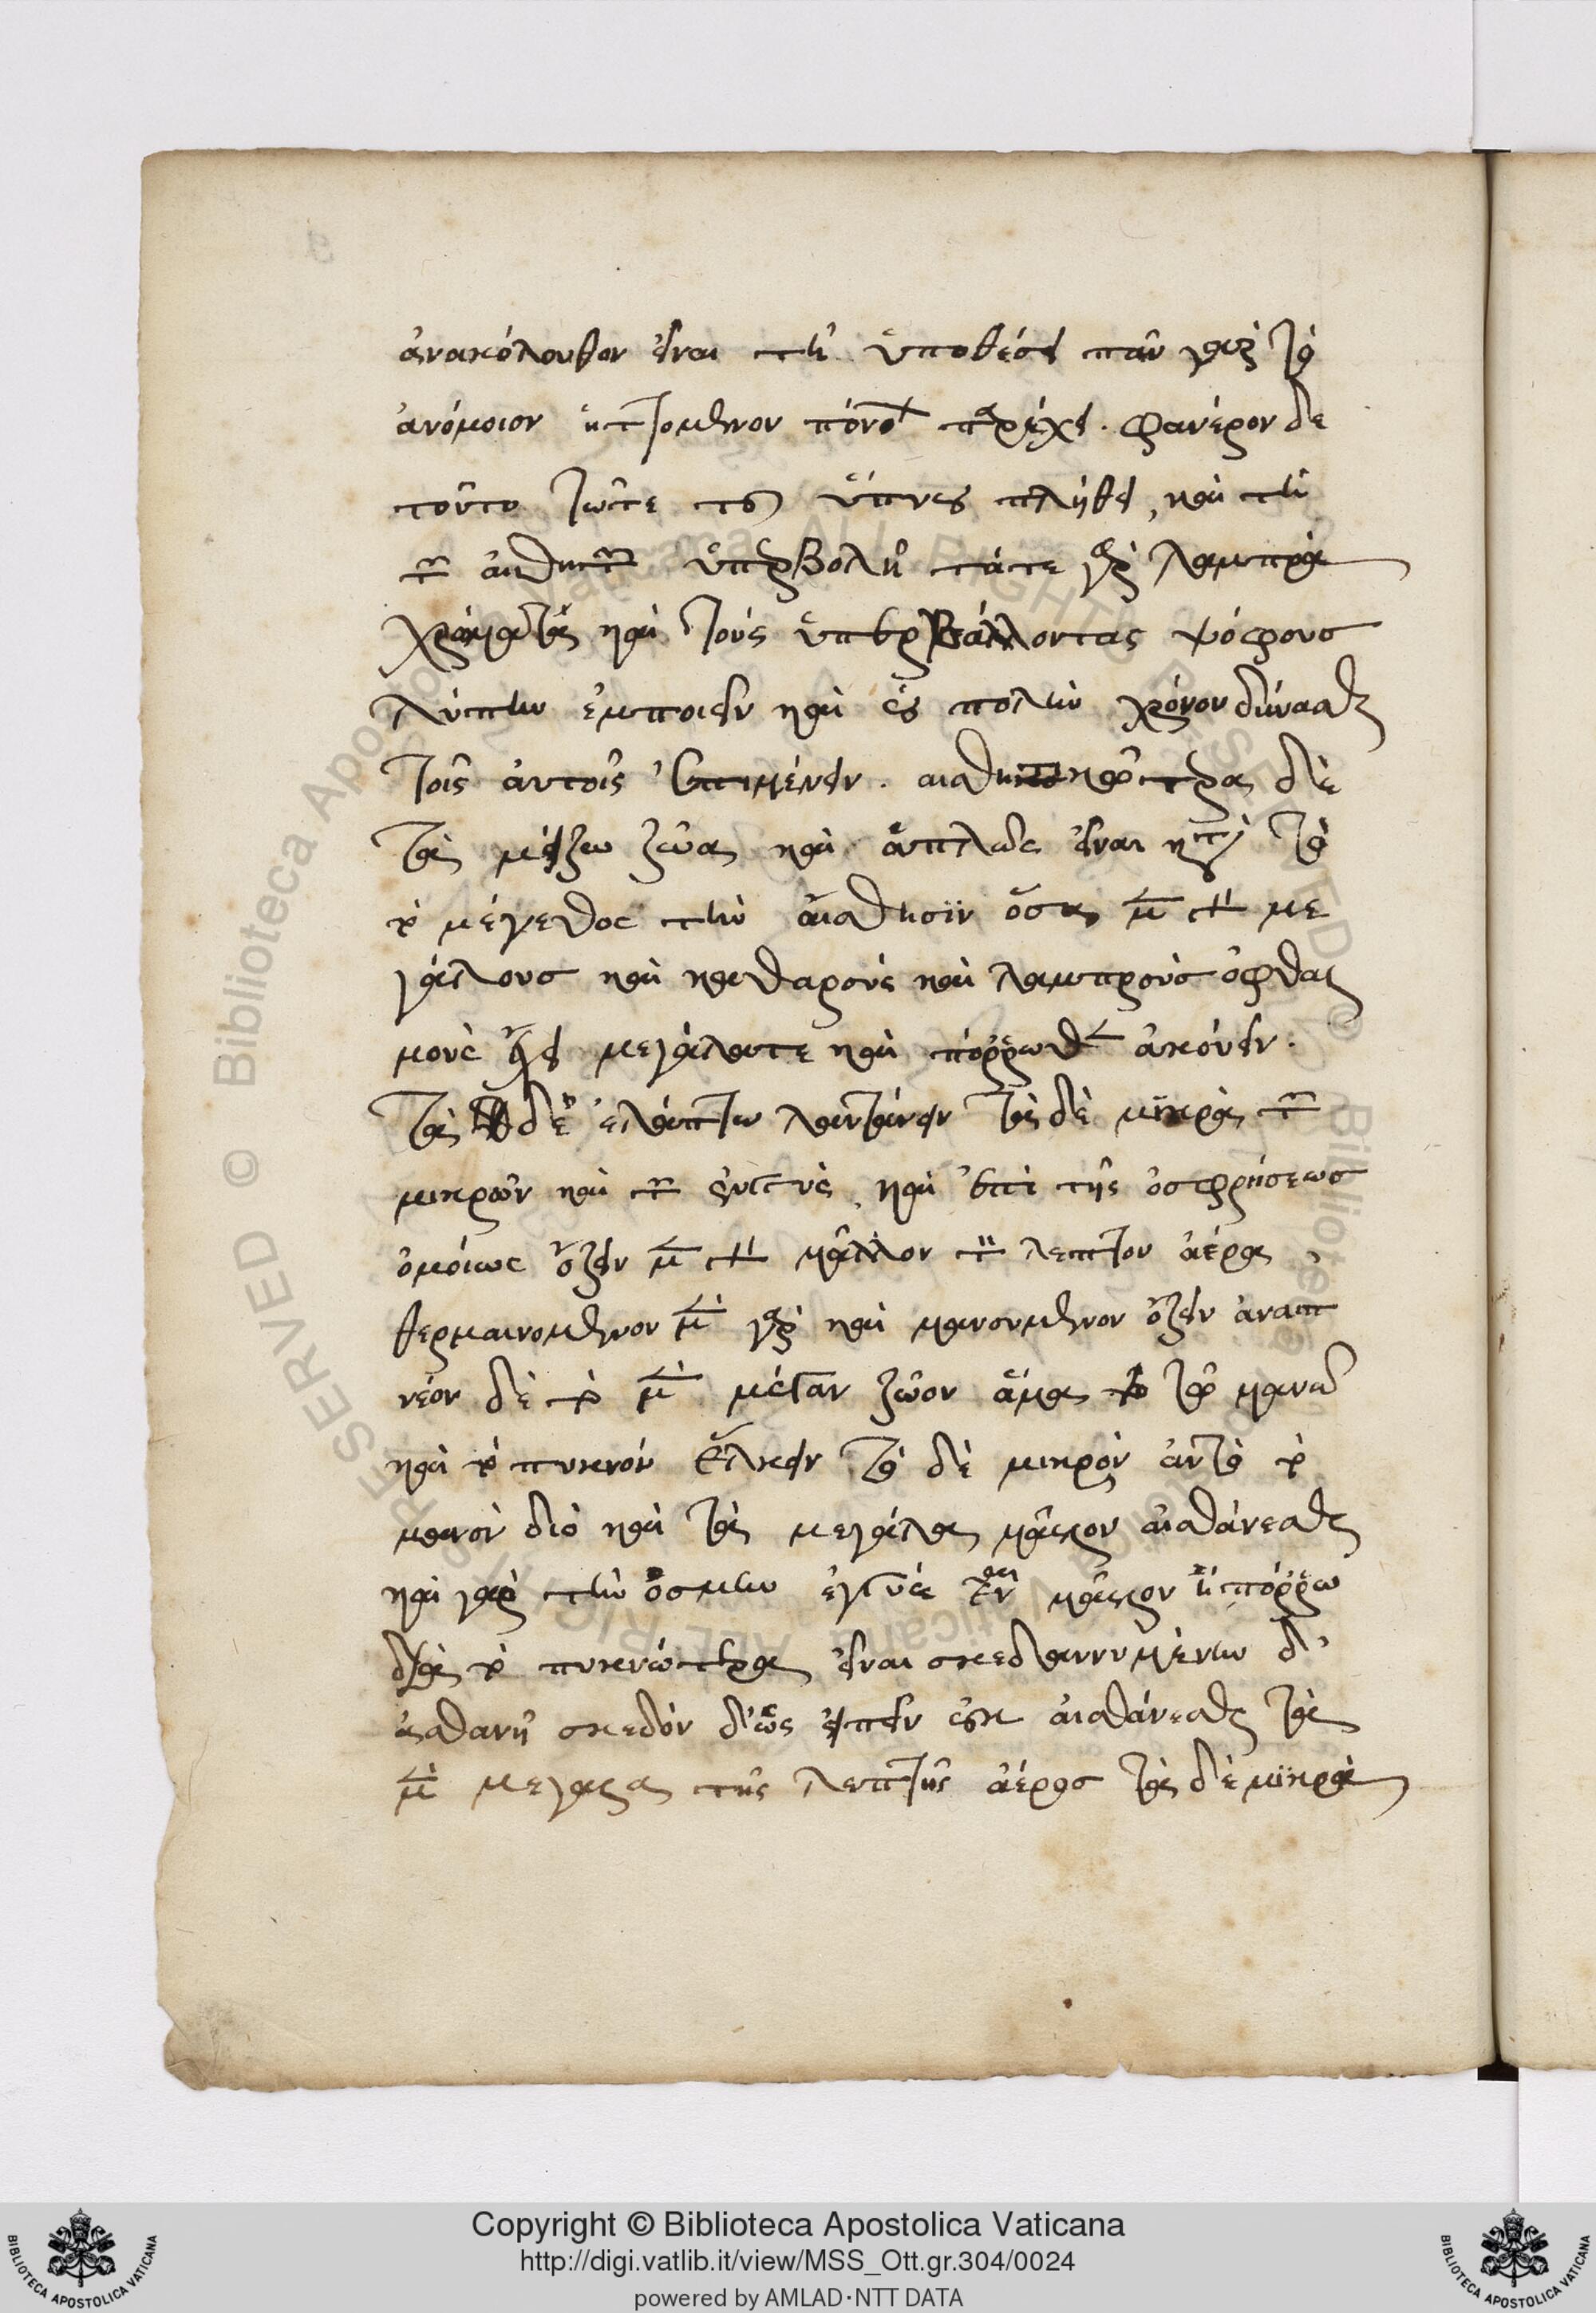 ἀνακόλουθον εἶναι τῆ ὑποθέσει πᾶν γὰρ τὸ
ἀνόμοιον ἁπτόμενον πόνον παρέχει. φανερον δε
τοῦτο τῶτε τοῦ ὕπνου πλήθει, καὶ τῆ
τῶν αἰσθητῶν ὑπερβολῆ τάτε γὰρ λαμπρὰ
χρώματα καὶ τοὺς ὑπερβάλλοντας ψόφους
λύπην ἐμποιεῖν καὶ οὐ πολὺν χρόνον δύνασθαι
τοῖς αὐτοῖς ἐπιμένειν. αισθητικώτερα δὲ
τὰ μείζω ζῶα καὶ ἁπλῶς εἶναι κατὰ τὸ
τὸ μέγεθος τὴν αἴσθησιν ὅσα μὲν με
γάλους καὶ καθαροὺς καὶ λαμπροὺς ὀφθαλ
μοὺς μεγάλατε καὶ πόρρωθεν ἀκούειν.
τὰ δὲ ἐλάττω τὰ δὲ μικρὰ τῶν
μικρῶν καὶ τῶν ἐγγὺς, καὶ ἐπὶ τῆς ὀσφρήσεως
ὁμοίως ὄζειν μὲν μᾶλλον τὸν λεπτὸν ἀέρα
θερμαινομενον μὲν γὰρ καὶ μανουμενον ὄζειν ἀναπ
νέον δὲ τὸ μὲν μέγαν ζῶον ἅμα τῶ μανῶ
καὶ τὸ πυκνόν ἕλκειν τὸ δὲ μικρὸν αὐτὸ τὸ
μανὸν διὸ καὶ τὰ μεγάλα μᾶλλον αἰσθάνεσθαι
καὶ γὰρ τὴν ὀσμὴν ἐγγὺς εἶναι μᾶλλον ἢ πόρρω
διὰ τὸ πυκνώτερα εἶναι σκεδαννυμένην δ’
ἀσθανῆ σχεδὸν δ’ ὡς εἰπεῖν οὐκ αἰσθάνεσθαι τὰ
μὲν μεγάλα τῆς λεπτῆς ἀέρος τὰ δὲ μικρὰ
Copyright © Biblioteca Apostolica Vaticana
http://digi.vatlib.it/view/MSS_Ott.gr.304/0024
powered by AMLAD·NTT DATA